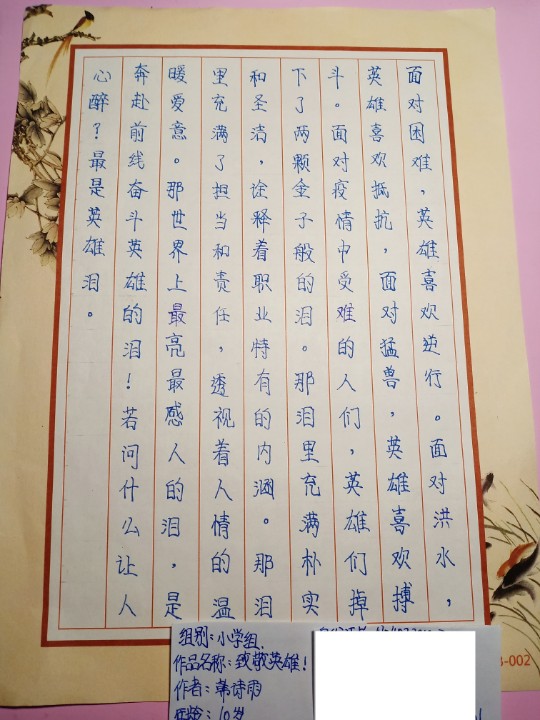 面对困难，英雄喜欢逆行。面对洪水，
英雄喜欢抵抗，面对猛兽，英雄喜欢搏
斗。面对疫情中受难的人们，英雄们掉
下了两颗金子般的泪。那泪里充满朴实
和圣洁，诠释着职业特有的内涵。那泪
里充满了担当和责任，透视着人情的温
暖爱意。那世界上最亮最感人的泪，是
奔赴前线奋斗英雄的泪！若问什么让人
心醉？最是英雄泪。
组别：小学组
作品名称：致敬英雄！
作者：韩诗雨
年龄：10岁
3-002